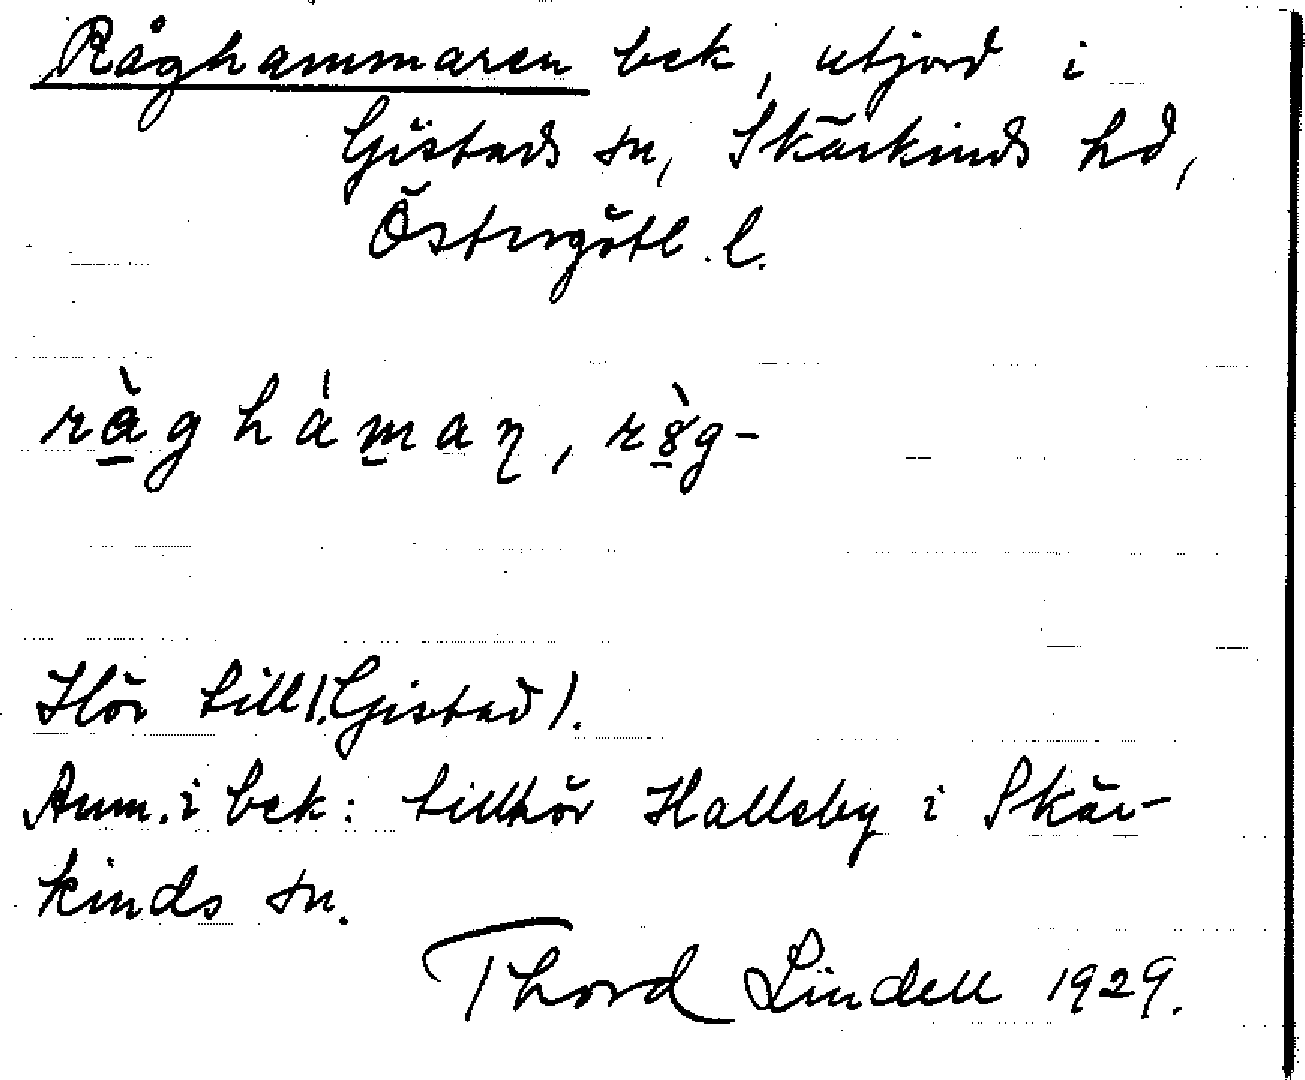 Råghammaren bek, utjord i
Gistads sn, Skärkinds hd,
Östergötl. l.
rå̀g hámaɳ, rò̱g-
Hör till (Gistad).
Anm. i bek: tillhör Halleby i Skär-
kinds sn.
Thord Lindell 1929.